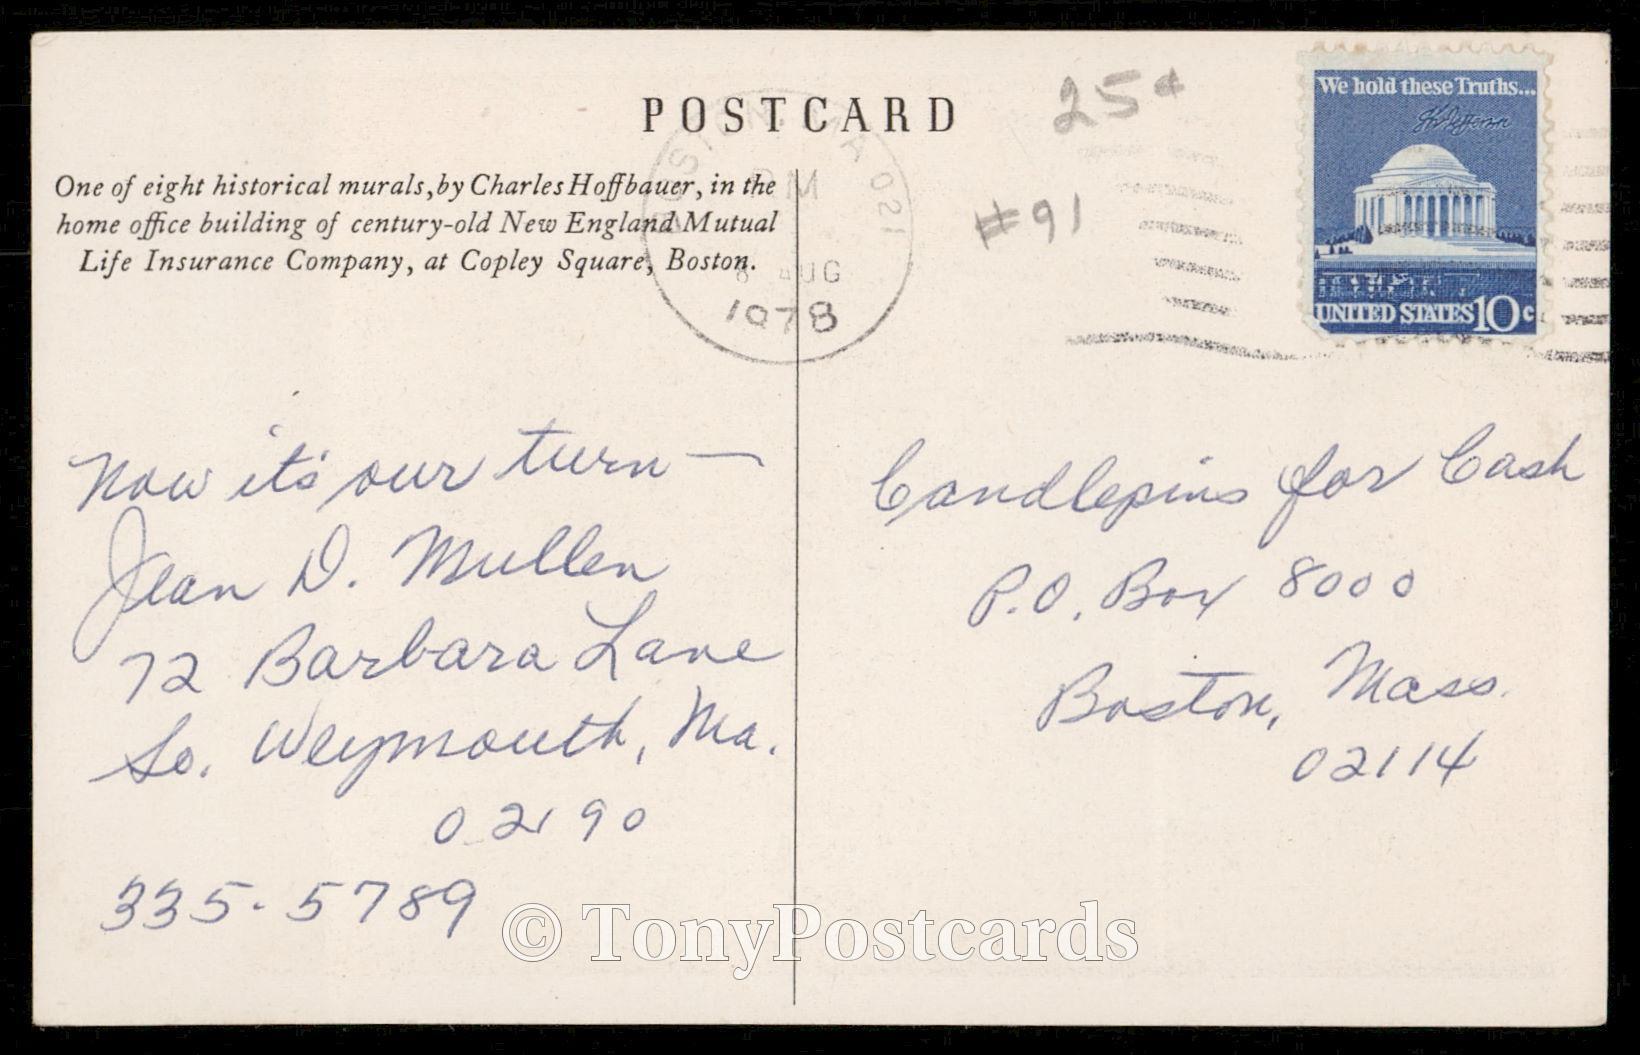 POSTCARD
One of eight historical murals, by Charles Hoffbauer, in the
home office building of century-old New England Mutual
Life Insurance Company, at Copley Square, Boston.
BOSTON, MA 021
PM
AUG
1978
25¢
#91
We hold these Truths...
Th Jefferson
UNITED STATES 10c
Now it's our turn —
Jean D. Mullen
72 Barbara Lane
So. Weymouth, Ma.
02190
335-5789
Candlepins for Cash
P.O. Box 8000
Boston, Mass.
02114
© TonyPostcards